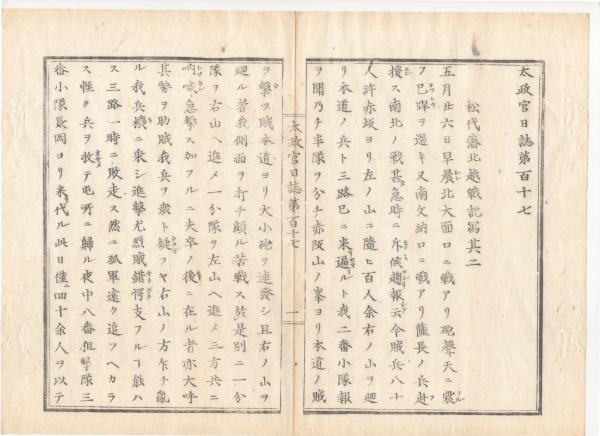 太政官日誌第百十七
松代藩北越戰記寫其二
五月廿六日早晨北大面口ニ戰アリ砲聲天ニ震
フ巳牌ヲ過キ又南文納口ニ戰アリ薩長ノ兵赴
援ス南北ノ戰甚急時ニ斥候趨報云今賊兵八十
人許赤坂ヨリ左ノ山ニ隨ヒ百人余右ノ山ヲ廻
リ本道ノ兵ト三路已ニ來逼ルト我二番小隊報
ヲ聞乃チ半隊ヲ分チ赤阪山ノ峯ヨリ本道ノ賊
太政官日誌第百十七
一
ヲ擊ツ賊本道ヨリ大小砲ヲ連發シ且右ノ山ヲ
廻ル者我側面ヲ打チ頗ル苦戰ス於是別ニ一分
隊ヲ右山ヘ進メ一分隊ヲ左山ヘ進メ三方共ニ
吶喊急擊ス加フルニ夫卒ノ後ニ在ル者亦大呼
其勢ヲ助賊我兵ヲ衆ト疑フヤ右山ノ方乍チ亂
ル我兵機ニ乘シ進擊尤烈賊錯愕支フルヿ能ハ
ス三路一時ニ敗走ス然ニ孤軍遠ク追フヘカラ
ス輕ク兵ヲ救テ屯所ニ歸ル夜中八番狙擊隊三
番小隊長岡ヨリ來代ル此日僅四十余人ヲ以テ